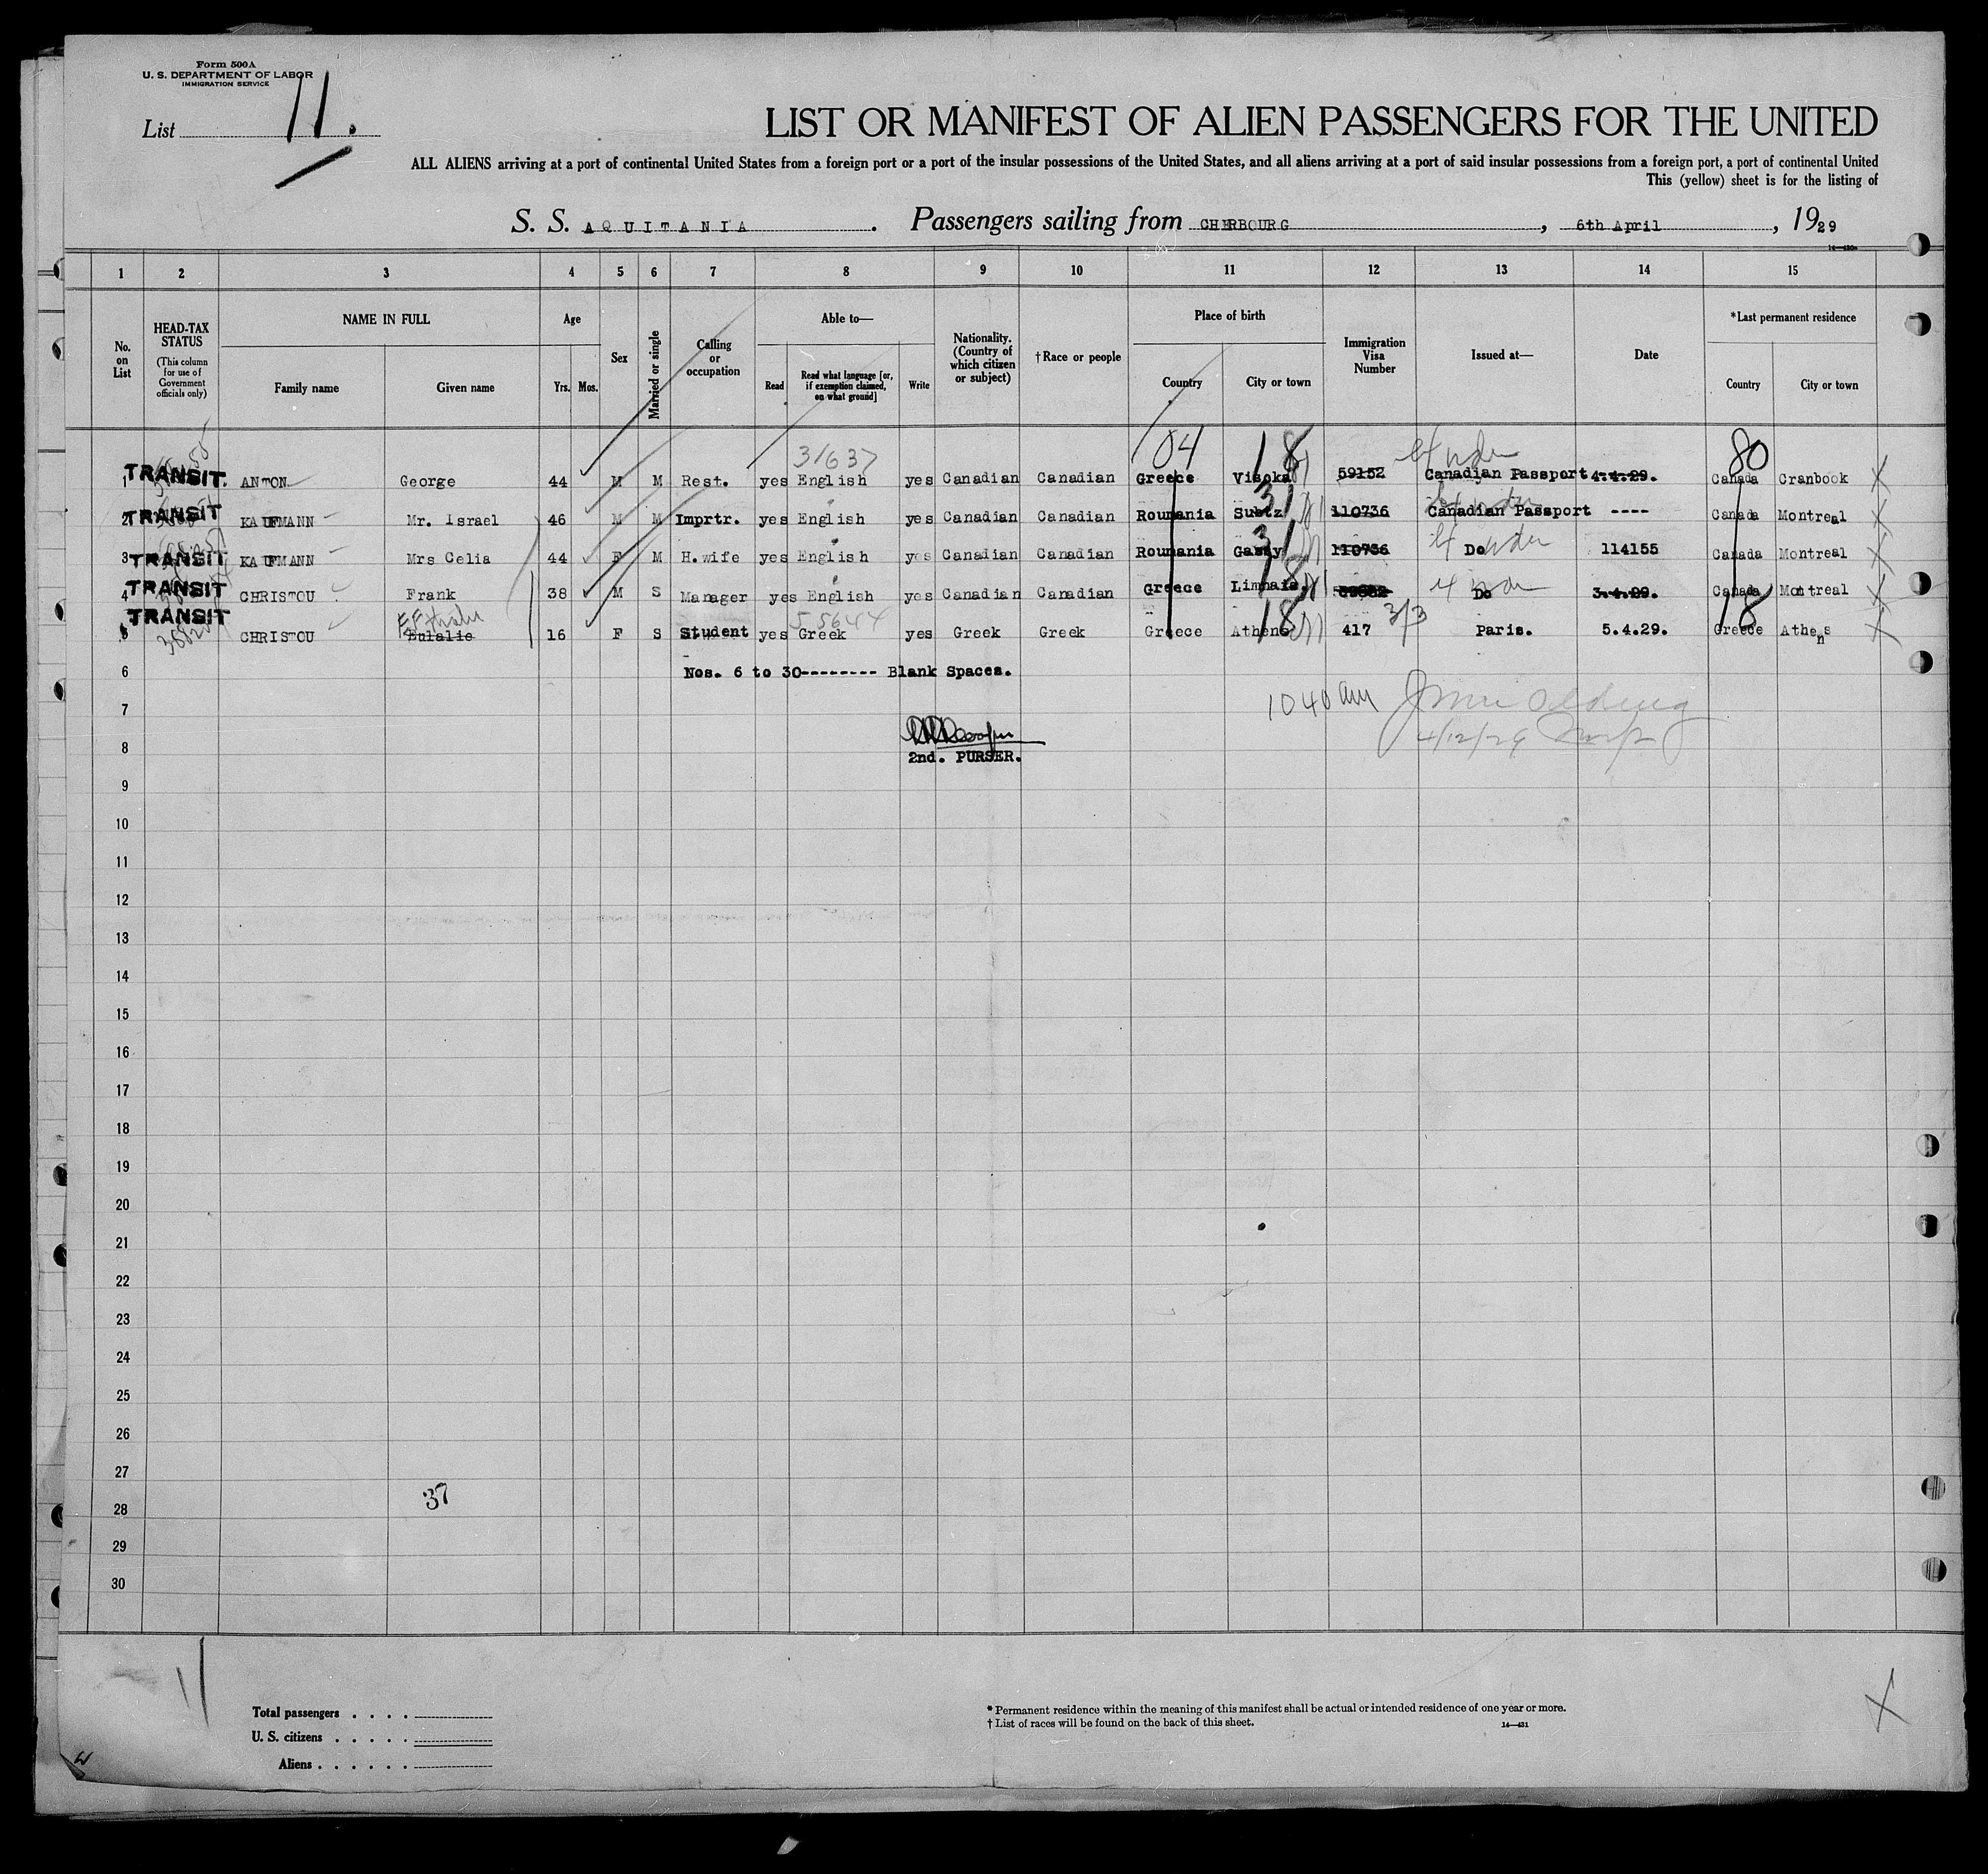 Form 500A
U. S. DEPARTMENT OF LABOR
IMMIGRATION SERVICE
List 11.
LIST OR MANIFEST OF ALIEN PASSENGERS FOR THE UNITED
ALL ALIENS arriving at a port of continental United States from a foreign port or a port of the insular possessions of the United States, and all aliens arriving at a port of said insular possessions from a foreign port, a port of continental United
This (yellow) sheet is for the listing of
S. S. AQUITANIA. Passengers sailing from CHERBOURG, 6th April, 1929
1 2 3 4 5 6 7 8 9 10 11 12 13 14 15
No. on List
HEAD-TAX STATUS (This column for use of Government officials only)
NAME IN FULL Family name Given name
Age Yrs. Mos.
Sex
Married or single
Calling or occupation
Able to— Read Read what language [or, if exemption claimed, on what ground] Write
Nationality. (Country of which citizen or subject)
†Race or people
Place of birth Country City or town
Immigration Visa Number
Issued at—
Date
*Last permanent residence Country City or town
31637 104 18 80
1 TRANSIT. ANTON George 44 M M Rest. yes English yes Canadian Canadian Greece Visoka 59152 Canadian Passport 4.4.29. Canada Cranbook
2 TRANSIT KAUFMANN Mr. Israel 46 M M Imprtr. yes English yes Canadian Canadian Roumania 31 110736 Canadian Passport ---- Canada Montreal
3 TRANSIT KAUFMANN Mrs Celia 44 F M H.wife yes English yes Canadian Canadian Roumania 31 110736 Do 114155 Canada Montreal
4 TRANSIT CHRISTOU Frank 38 M S Manager yes English yes Canadian Canadian Greece 18 Do 3.4.29. Canada Montreal
55644 3/3
5 TRANSIT CHRISTOU Eulalie 16 F S Student yes Greek yes Greek Greek Greece Athens 18 417 Paris. 5.4.29. Greece Athens 18
6 Nos. 6 to 30-------- Blank Spaces.
7 1040 am
8 4/12/29
2nd. PURSER.
9
10
11
12
13
14
15
16
17
18
19
20
21
22
23
24
25
26
27
28 37
29
30
11
Total passengers . . . .
U. S. citizens . . . . .
Aliens . . . . . .
* Permanent residence within the meaning of this manifest shall be actual or intended residence of one year or more.
† List of races will be found on the back of this sheet.
14—431